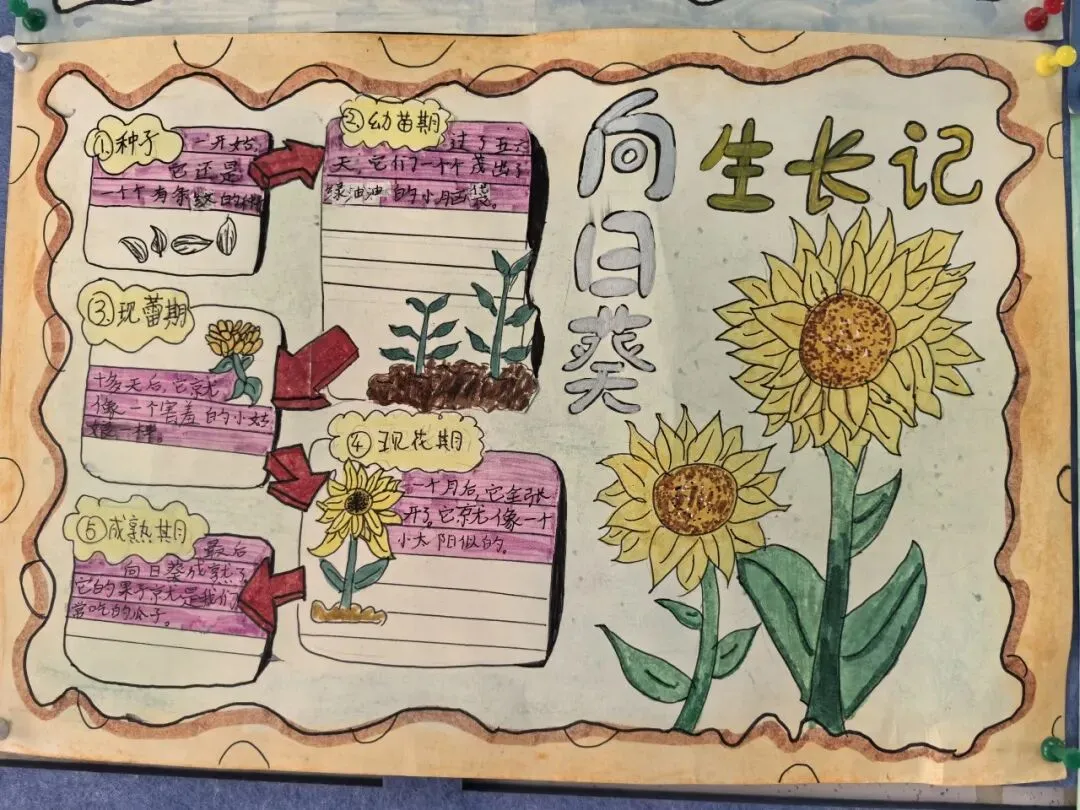 向日葵
生长记
①种子
一开始,
它还是
一个个有条纹的
②幼苗期
过了五六
天,它们一个个茂出了
绿油油的小脑袋。
③现蕾期
十多天后,它就
像一个害羞的小姑
娘一样。
④现花期
一个月后,它全张
开了。它就像一个
小太阳似的。
⑤成熟期
最后
向日葵成熟了,
它的果子就是我们
常吃的瓜子。